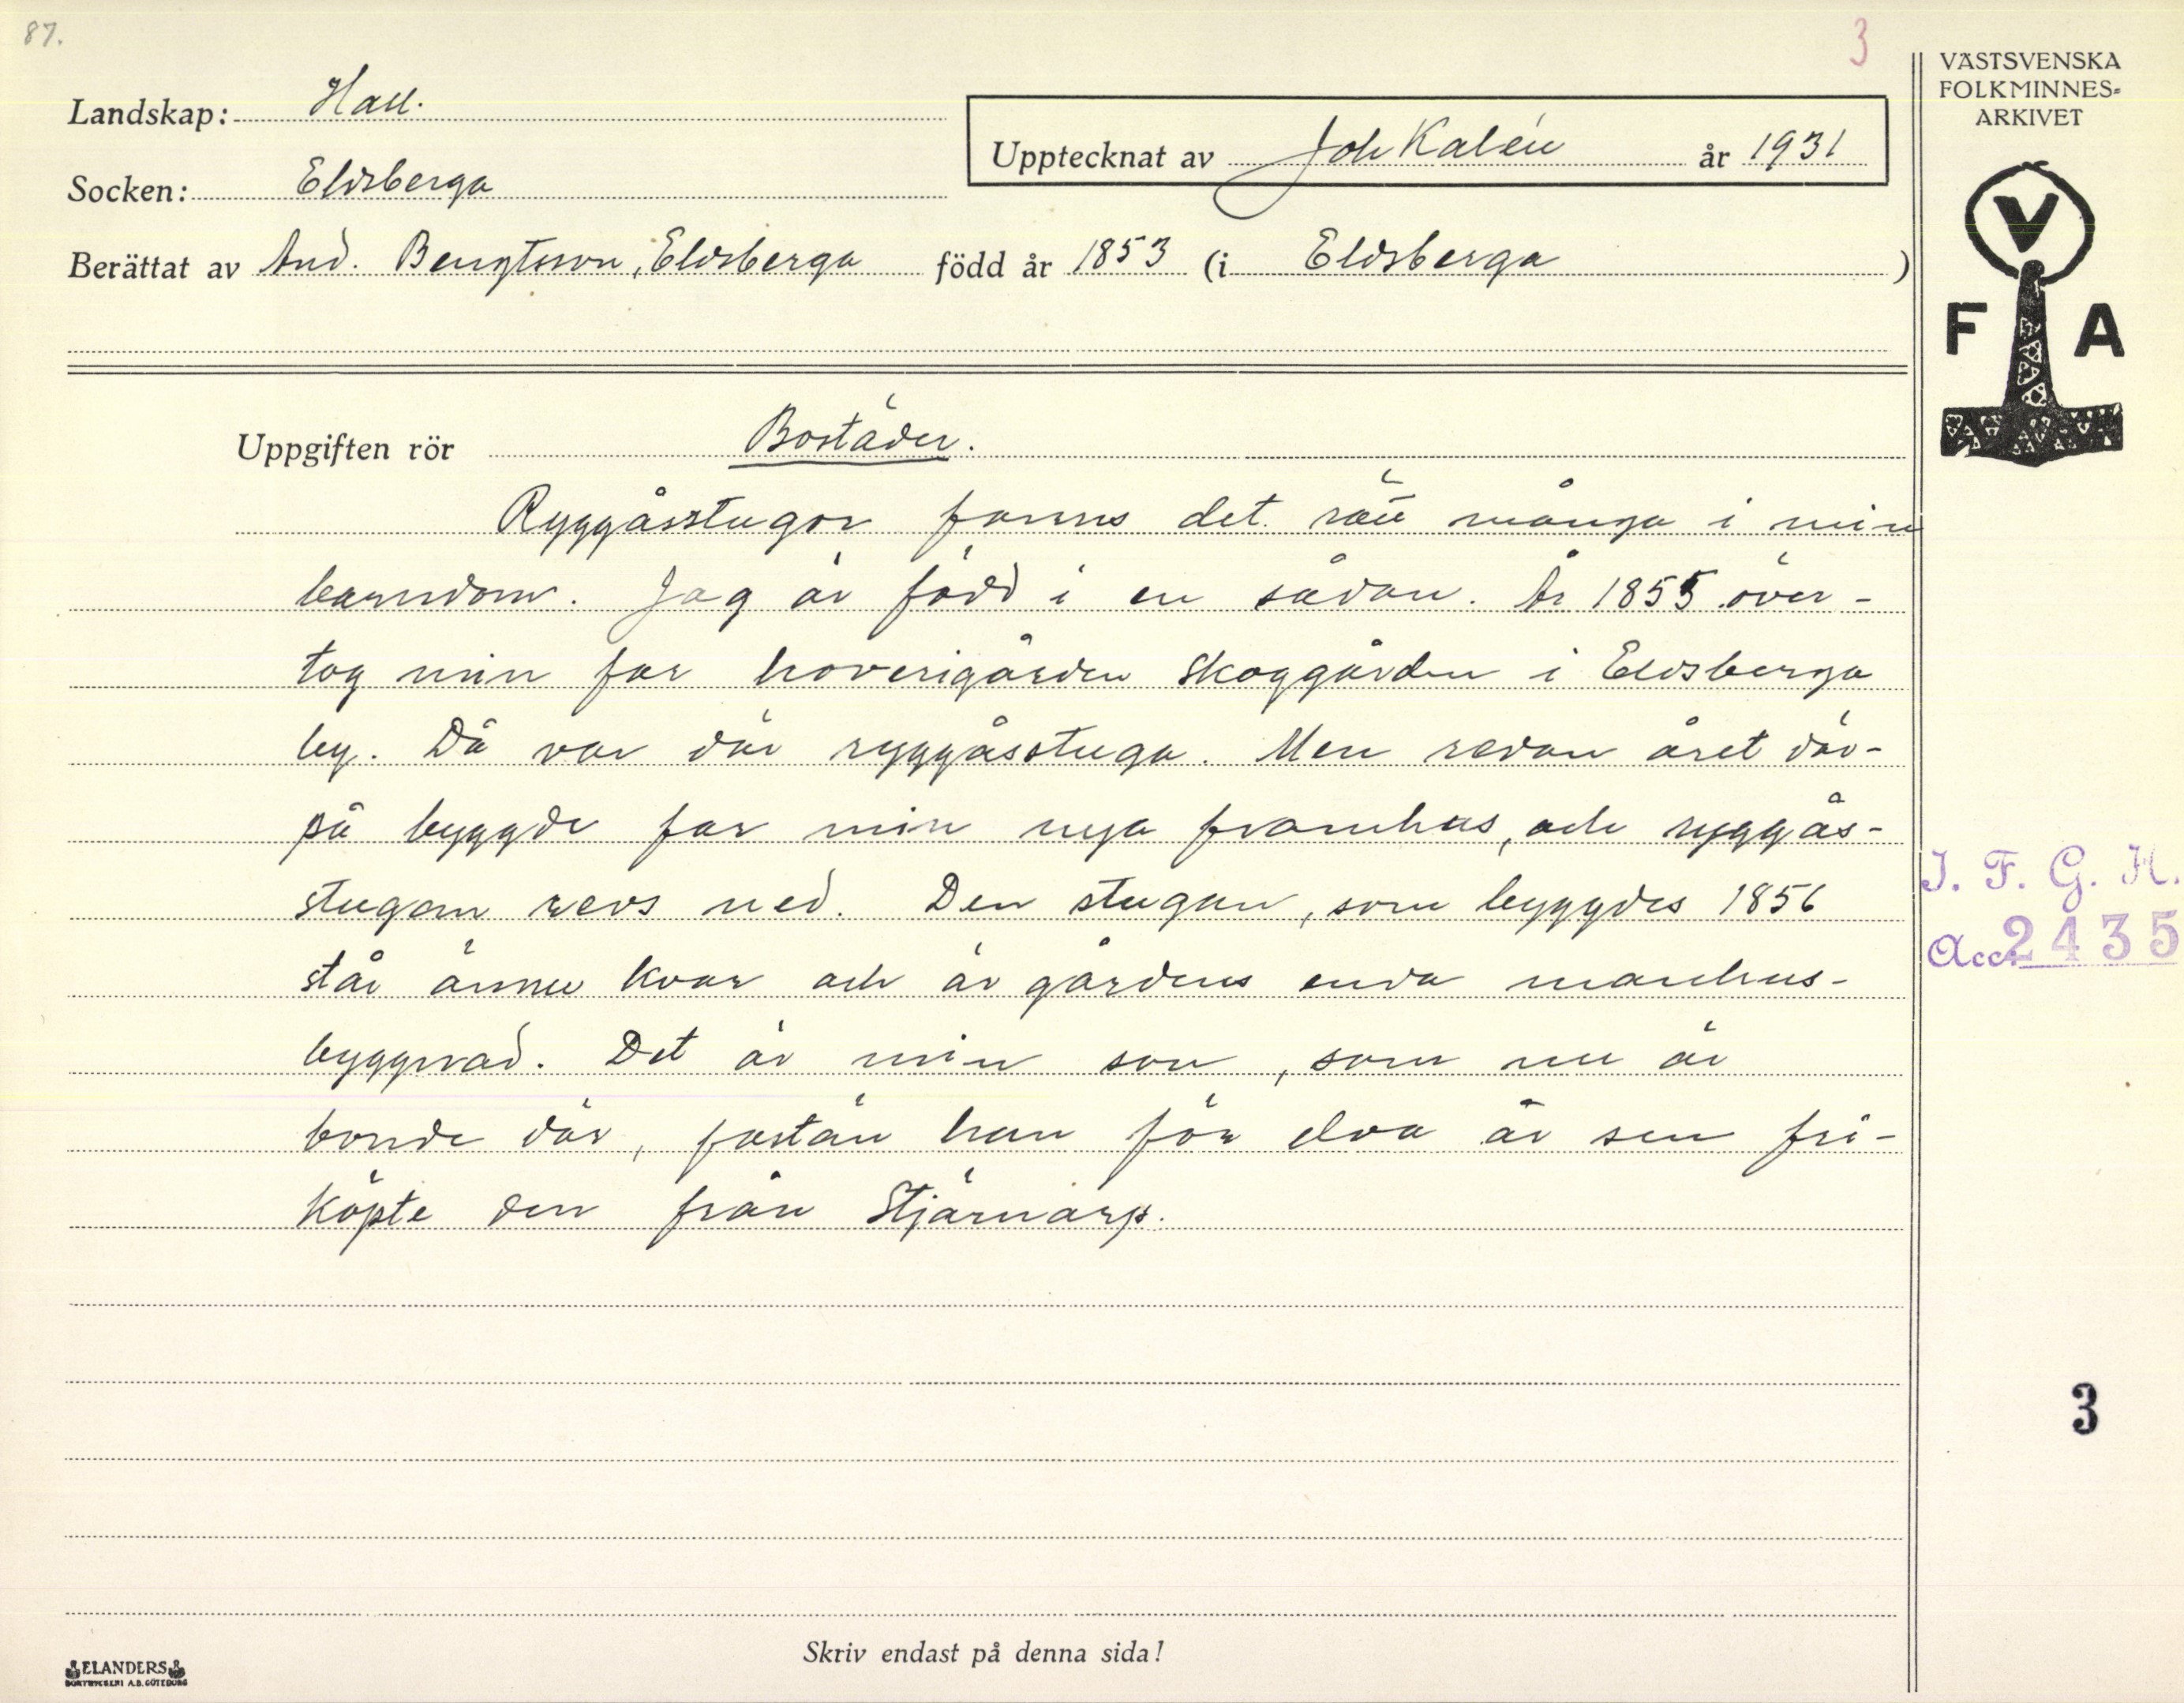 87.
3
VÄSTSVENSKA
FOLKMINNES-
ARKIVET
Landskap: Hall.
Upptecknat av Joh Kalén år 1931
Socken: Eldsberga
Berättat av And. Bengtsson, Eldsberga född år 1853 (i Eldsberga)
V
F A
Uppgiften rör Bostäder.
Ryggåsstugor fanns det rätt många i min
barndom. Jag är född i en sådan. År 1855 över-
tog min far hoverigården Skoggården i Eldsberga
by. Då var där ryggåsstuga. Men redan året där-
på byggde far min nya framhus, och ryggås-
stugan revs ned. Den stugan, som byggdes 1856
står ännu kvar och är gårdens enda manhus-
byggnad. Det är min son, som nu är
bonde där, fastän han för elva år sen fri-
köpte den från Stjärnarp.
I. F. G. H.
Acc. 2435
3
Skriv endast på denna sida!
ELANDERS
BOKTRYCKERI A.B. GÖTEBORG